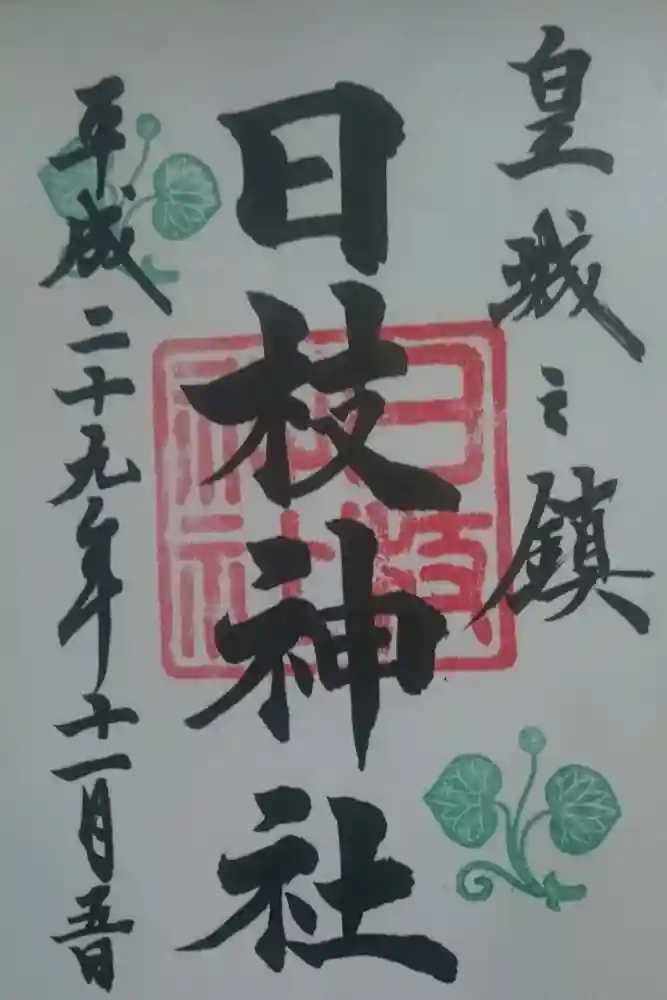 皇城之鎮
日枝神社
日枝神社
平成二十九年十一月五日